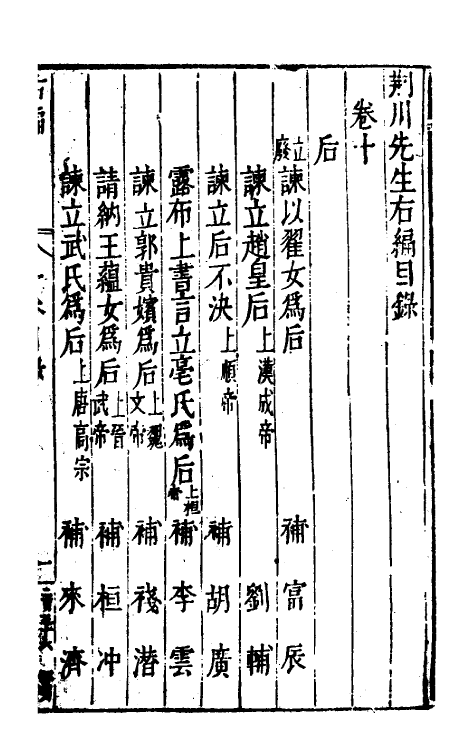 荆川先生右編目錄
卷十
后
立廢
諫以翟女爲后 補 富辰
諫立趙皇后 上漢成帝 劉輔
諫立后不決 上順帝 補 胡廣
露布上書言立亳氏爲后 上桓帝 補 李雲
諫立郭貴嬪爲后 上魏文帝 補 棧潛
請納王蘊女爲后 上晉武帝 補 桓冲
諫立武氏爲后 上唐高宗 補 來濟
右編